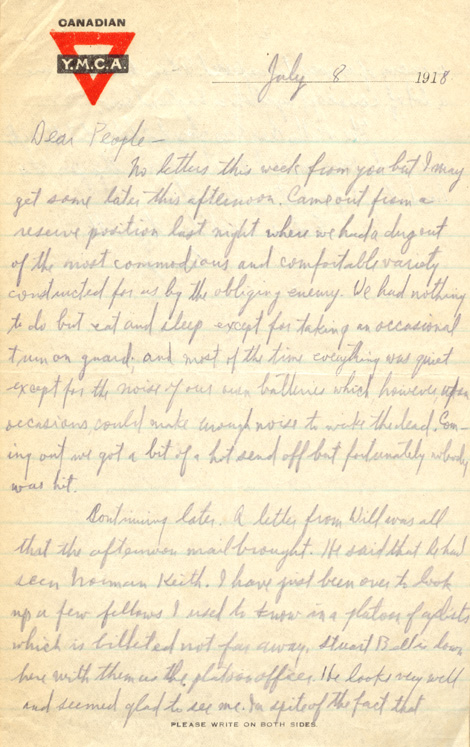 CANADIAN
Y.M.C.A.
July 8 1918
Dear People—
No letters this week from you but I may
get some later this afternoon. Came out from a
reserve position last night where we had a dug out
of the most commodious and comfortable variety
constructed for us by the obliging enemy. We had nothing
to do but eat and sleep except for taking an occasional
turn on guard. and most of the time everything was quiet
except for the noise of our own batteries which however upon
occasions could make enough noise to wake the dead. Com-
ing out we got a bit of a hot send off but fortunately nobody
was hit.
Continuing later. A letter from Will was all
that the afternoon mail brought. He said that he had
seen Norman Keith. I have just been over to look
up a few fellows I used to know in a platoon of cyclists
which is billeted not far away. Stuart is down
here with them as the platoon officer. He looks very well
and seemed glad to see me. In spite of the fact that
PLEASE WRITE ON BOTH SIDES.